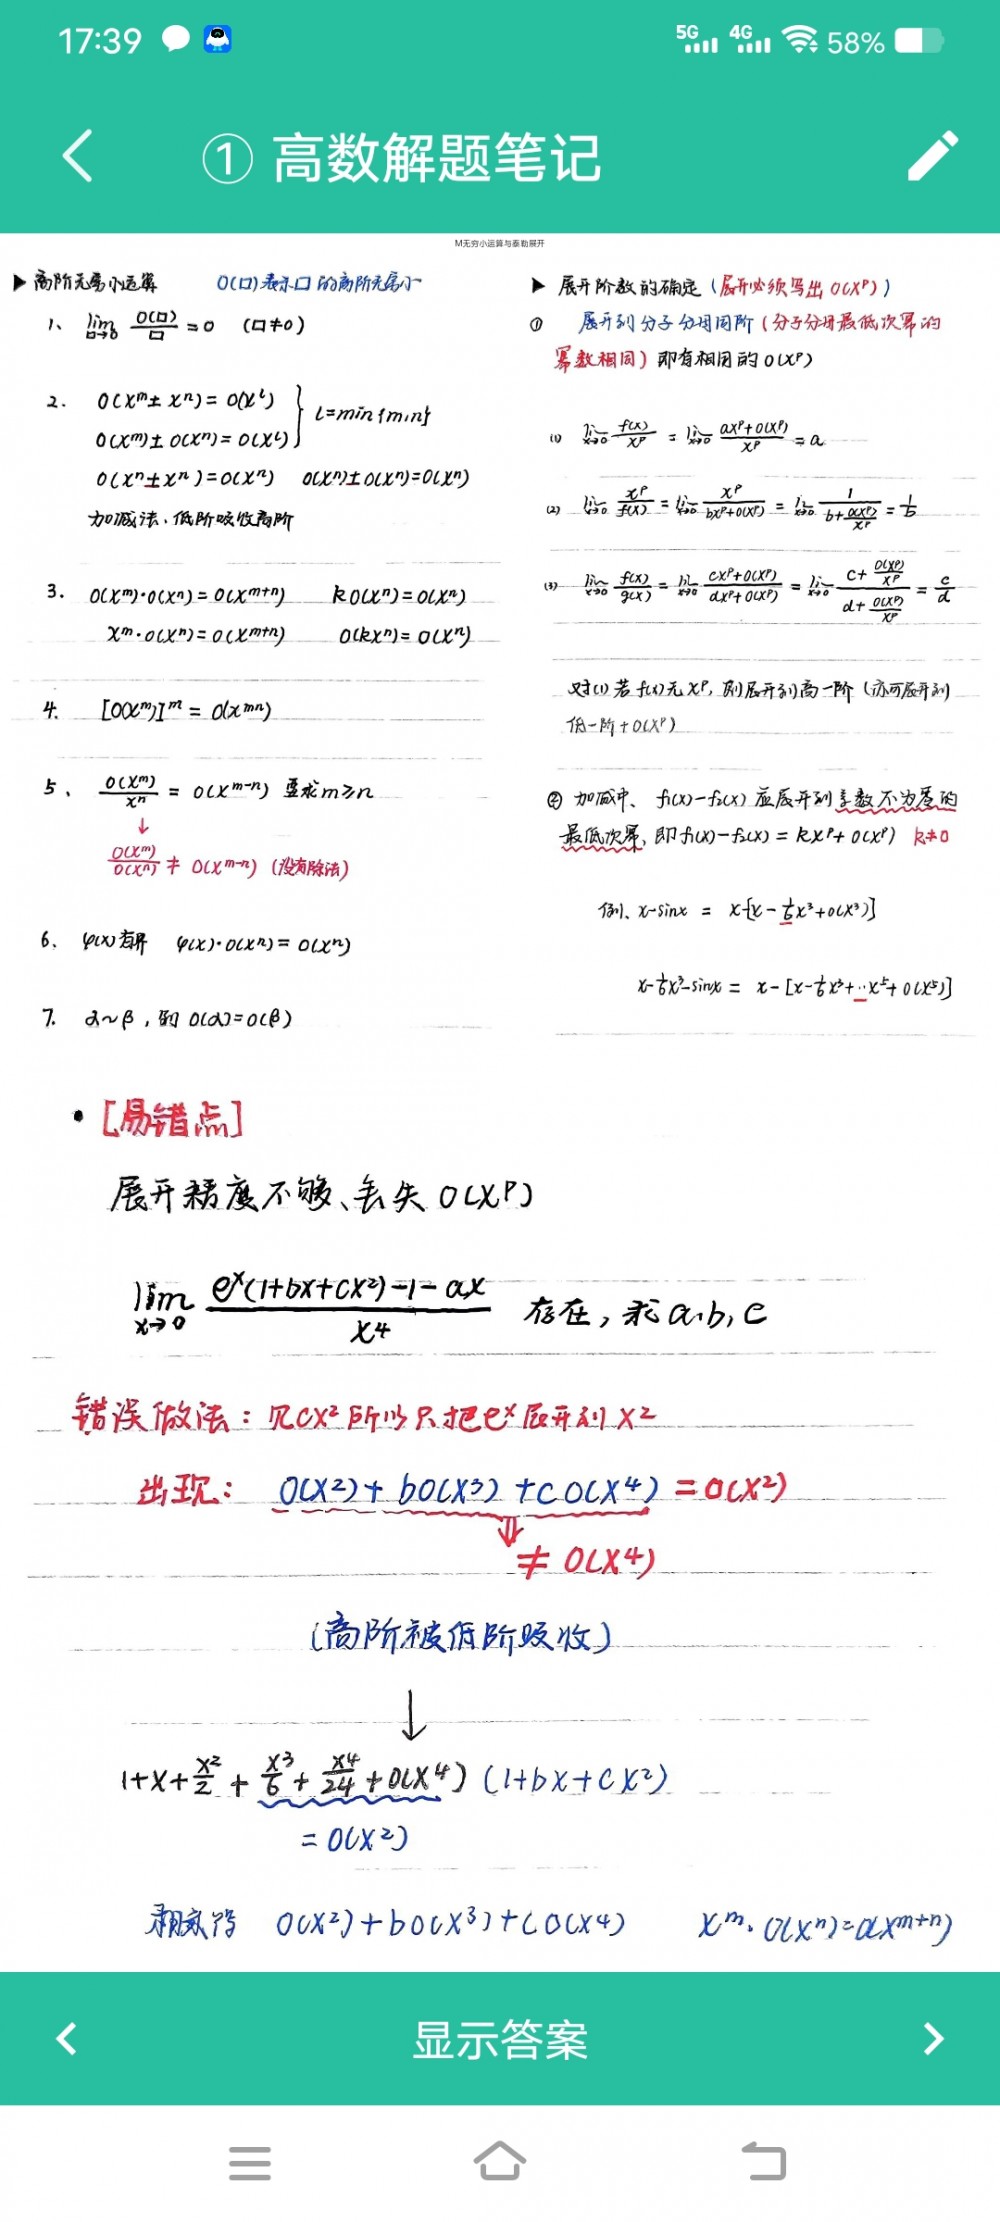 17:39 5G 4G 58%
① 高数解题笔记
M无穷小运算与泰勒展开
▶ 高阶无穷小运算 O(口)表示口的高阶无穷小
1、 lim 口→0 O(口)/口 = 0 (口≠0)
2. O(x^m ± x^n) = O(x^L)
O(x^m) ± O(x^n) = O(x^L) } L=min{m,n}
O(x^n ± x^n) = O(x^n) O(x^n) ± O(x^n) = O(x^n)
加减法、低阶吸收高阶
3. O(x^m)·O(x^n) = O(x^{m+n}) kO(x^n) = O(x^n)
x^m·O(x^n) = O(x^{m+n}) O(kx^n) = O(x^n)
4. [O(x^m)]^m = O(x^{mn})
5、 O(x^m)/x^n = O(x^{m-n}) 要求m≥n
↓
O(x^m)/O(x^n) ≠ O(x^{m-n}) (没有除法)
6、 φ(x)有界 φ(x)·O(x^n) = O(x^n)
7. α~β,则 O(α)=O(β)
▶ 展开阶数的确定(展开必须写出 O(x^p))
① 展开到分子分母同阶(分子分母最低次幂的
幂数相同)即有相同的O(x^p)
(1) lim x→0 f(x)/x^p = lim x→0 (ax^p+O(x^p))/x^p = a
(2) lim x→0 x^p/f(x) = lim x→0 x^p/(bx^p+O(x^p)) = lim x→0 1/(b+O(x^p)/x^p) = 1/b
(3) lim x→0 f(x)/g(x) = lim x→0 (cx^p+O(x^p))/(dx^p+O(x^p)) = lim x→0 (c+O(x^p)/x^p)/(d+O(x^p)/x^p) = c/d
对(1)若f(x)无x^p,则展开到高一阶(亦可展开到
低一阶+O(x^p)
② 加减中、f₁(x)-f₂(x)应展开到系数不为零的
最低次幂,即f₁(x)-f₂(x) = kx^p+O(x^p) k≠0
例、x-sinx = x-[x-1/6x³+O(x³)]
x-1/6x³-sinx = x-[x-1/6x³+··x⁵+O(x⁵)]
• [易错点]
展开精度不够、丢失O(x^p)
lim x→0 (e^x(1+bx+cx²)-1-ax)/x⁴ 存在,求a,b,c
错误做法:见cx²所以只把e^x展开到x²
出现: O(x²)+bO(x³)+cO(x⁴) = O(x²)
⇓ ≠ O(x⁴)
(高阶被低阶吸收)
↓
1+x+x²/2+x³/6+x⁴/24+O(x⁴))(1+bx+cx²)
= O(x²)
O(x²)+bO(x³)+cO(x⁴) x^m·O(x^n)=O(x^{m+n})
显示答案